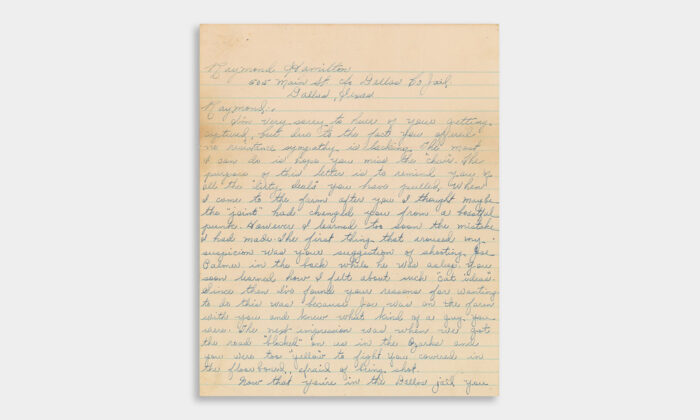 Raymond Hamilton
505 Main St. Co Dallas Co Jail.
Dallas, Texas
Raymond:
I'm very sorry to hear of your getting
captured, but due to the fact you offered
no resistence sympathy is lacking. The most
I can do is hope you miss the "chair". The
purpose of this letter is to remind you of
all the "dirty deals" you have pulled. When
I came to the farm after you I thought maybe
the "joint" had changed you from a boastful
punk. However I learned too soon the mistake
I had made. The first thing that aroused my
suspicion was your suggestion of shooting Joe
Palmer in the back while he was asleep. You
soon learned how I felt about such "cat ideas".
Since then I've found your reasons for wanting
to do this was because Joe was on the farm
with you and knew what kind of a guy you
were. The next impression was when we got
the road "blocked" on us in the Ozarks and
you were too "yellow" to fight. You cowered in
the floorboard, afraid of being shot.
Now that you're in the Dallas jail you